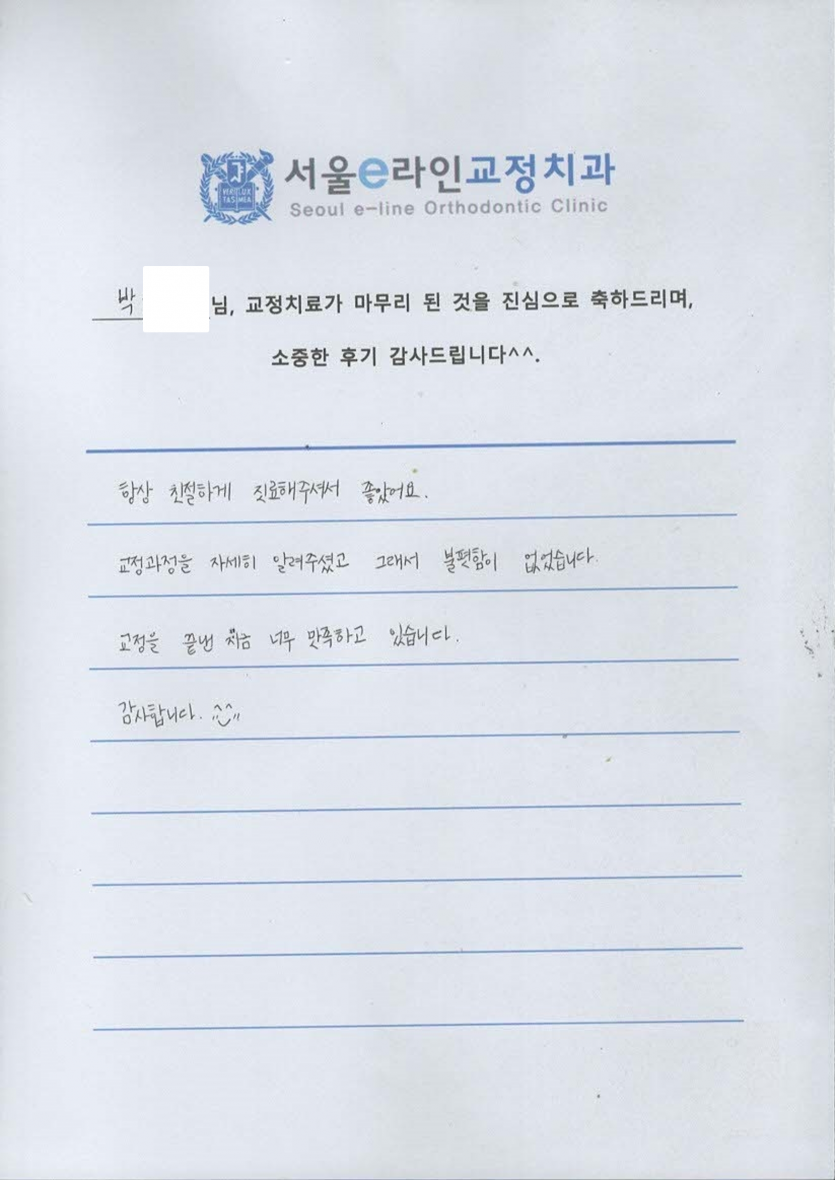 서울e라인교정치과
Seoul e-line Orthodontic Clinic
VERI LUX
TAS MEA
박 님, 교정치료가 마무리 된 것을 진심으로 축하드리며,
소중한 후기 감사드립니다^^.
항상 친절하게 진료해주셔서 좋았어요.
교정과정을 자세히 알려주셨고 그래서 불편함이 없었습니다.
교정을 끝낸 지금 너무 만족하고 있습니다.
감사합니다.